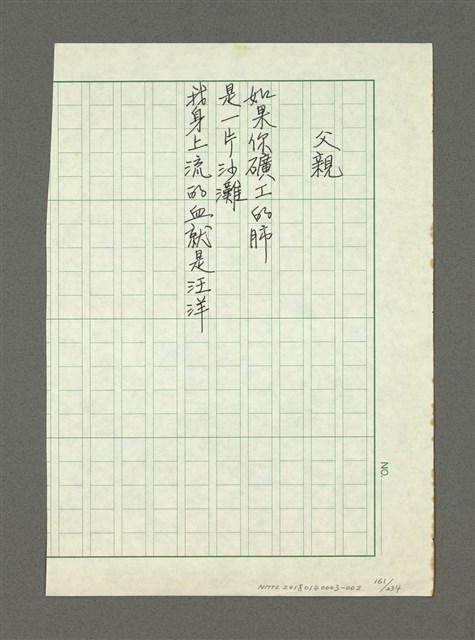 父親
如果你礦工的肺
是一片沙灘
我身上流的血就是汪洋
NO.
NMTL20180140003-002
161/234